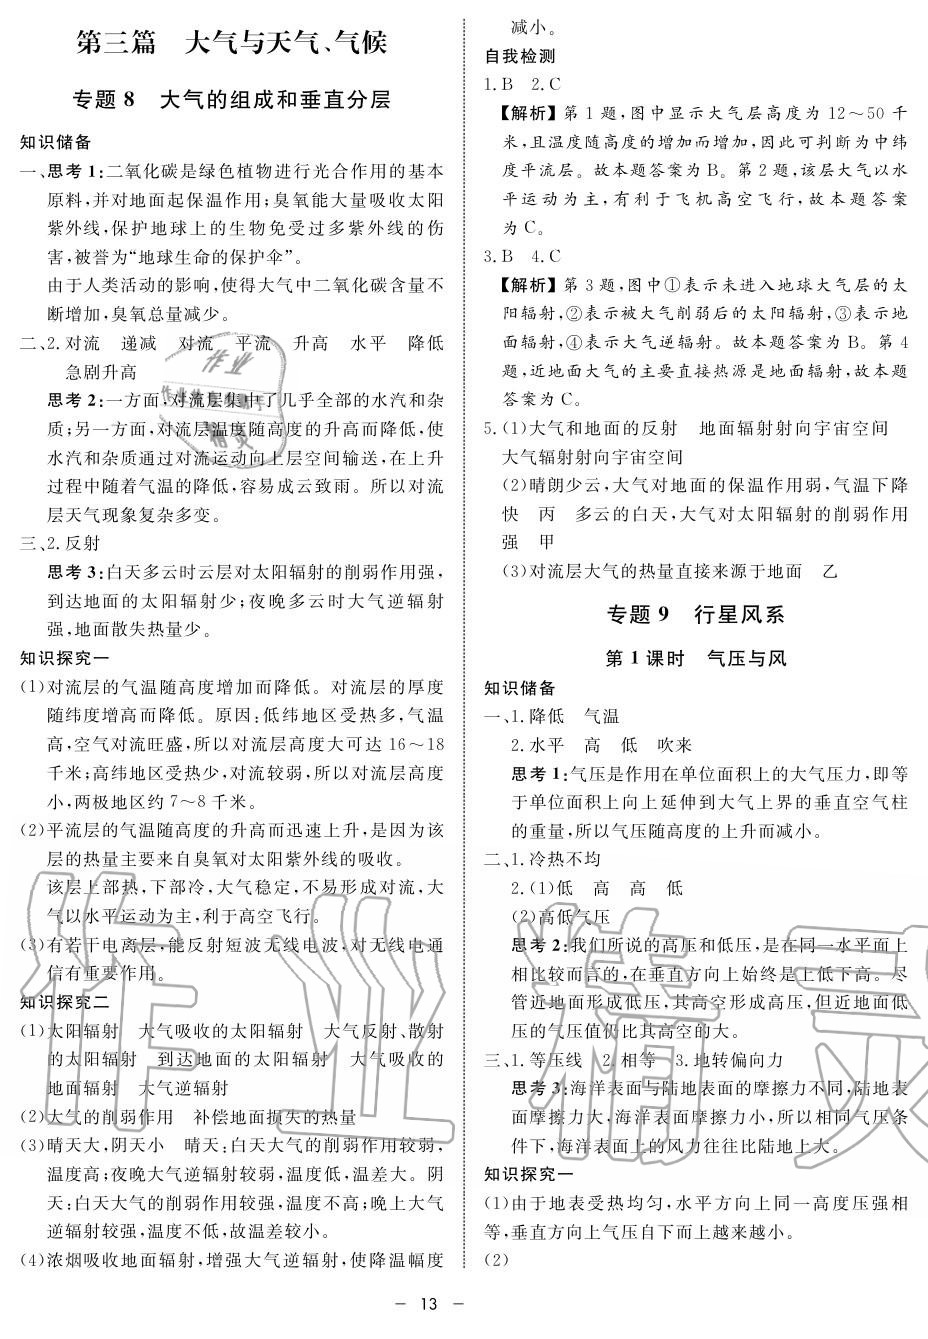 第三篇　大气与天气、气候
专题 8　大气的组成和垂直分层
知识储备
一、思考 1:二氧化碳是绿色植物进行光合作用的基本
原料,并对地面起保温作用;臭氧能大量吸收太阳
紫外线,保护地球上的生物免受过多紫外线的伤
害,被誉为“地球生命的保护伞”。
由于人类活动的影响,使得大气中二氧化碳含量不
断增加,臭氧总量减少。
二、2.对流　递减　对流　平流　升高　水平　降低
急剧升高
思考 2:一方面,对流层集中了几乎全部的水汽和杂
质;另一方面,对流层温度随高度的升高而降低,使
水汽和杂质通过对流运动向上层空间输送,在上升
过程中随着气温的降低,容易成云致雨。所以对流
层天气现象复杂多变。
三、2.反射
思考 3:白天多云时云层对太阳辐射的削弱作用强,
到达地面的太阳辐射少;夜晚多云时大气逆辐射
强,地面散失热量少。
知识探究一
(1)对流层的气温随高度增加而降低。对流层的厚度
随纬度增高而降低。原因:低纬地区受热多,气温
高,空气对流旺盛,所以对流层高度大可达 16～18
千米;高纬地区受热少,对流较弱,所以对流层高度
小,两极地区约 7～8 千米。
(2)平流层的气温随高度的升高而迅速上升,是因为该
层的热量主要来自臭氧对太阳紫外线的吸收。
该层上部热,下部冷,大气稳定,不易形成对流,大
气以水平运动为主,利于高空飞行。
(3)有若干电离层,能反射短波无线电波,对无线电通
信有重要作用。
知识探究二
(1)太阳辐射　大气吸收的太阳辐射　大气反射、散射
的太阳辐射　到达地面的太阳辐射　大气吸收的
地面辐射　大气逆辐射
(2)大气的削弱作用　补偿地面损失的热量
(3)晴天大,阴天小　晴天:白天大气的削弱作用较弱,
温度高;夜晚大气逆辐射较弱,温度低,温差大。阴
天:白天大气的削弱作用较强,温度不高;晚上大气
逆辐射较强,温度不低,故温差较小。
(4)浓烟吸收地面辐射,增强大气逆辐射,使降温幅度
减小。
自我检测
1.B　2.C
【解析】第 1 题,图中显示大气层高度为 12～50 千
米,且温度随高度的增加而增加,因此可判断为中纬
度平流层。故本题答案为 B。第 2 题,该层大气以水
平运动为主,有利于飞机高空飞行,故本题答案
为 C。
3.B　4.C
【解析】第 3 题,图中①表示未进入地球大气层的太
阳辐射,②表示被大气削弱后的太阳辐射,③表示地
面辐射,④表示大气逆辐射。故本题答案为 B。第 4
题,近地面大气的主要直接热源是地面辐射,故本题
答案为 C。
5.(1)大气和地面的反射　地面辐射射向宇宙空间
大气辐射射向宇宙空间
(2)晴朗少云,大气对地面的保温作用弱,气温下降
快　丙　多云的白天,大气对太阳辐射的削弱作用
强　甲
(3)对流层大气的热量直接来源于地面　乙
专题 9　行星风系
第 1 课时　气压与风
知识储备
一、1.降低　气温
2.水平　高　低　吹来
思考 1:气压是作用在单位面积上的大气压力,即等
于单位面积上向上延伸到大气上界的垂直空气柱
的重量,所以气压随高度的上升而减小。
二、1.冷热不均
2.(1)低　高　高　低
(2)高低气压
思考 2:我们所说的高压和低压,是在同一水平面上
相比较而言的,在垂直方向上始终是上低下高。尽
管近地面形成低压,其高空形成高压,但近地面低
压的气压值仍比其高空的大。
三、1.等压线　2.相等　3.地转偏向力
思考 3:海洋表面与陆地表面的摩擦力不同,陆地表
面摩擦力大,海洋表面摩擦力小,所以相同气压条
件下,海洋表面上的风力往往比陆地上大。
知识探究一
(1)由于地表受热均匀,水平方向上同一高度压强相
等,垂直方向上气压自下而上越来越小。
(2)
— 13 —
作业精灵